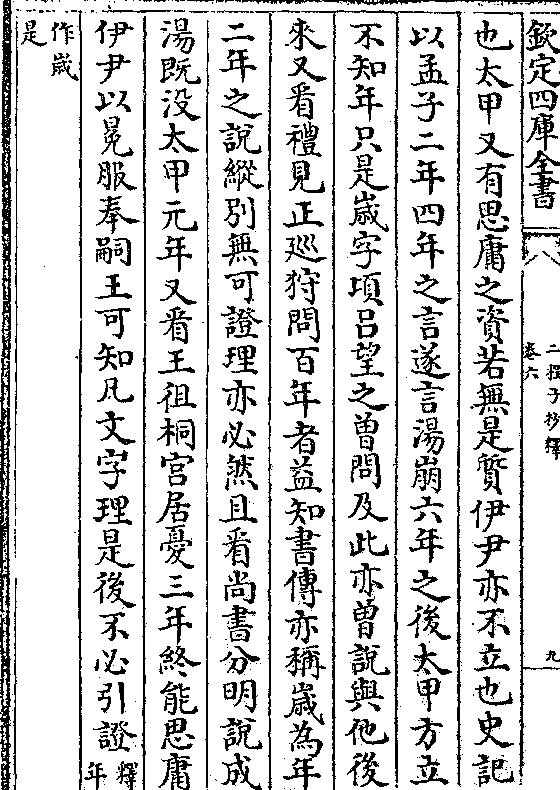 欽定四庫全書
二程子抄釋
卷六
九
也太甲又有思庸之資若無是質伊尹亦不立也史記
以孟子二年四年之言遂言湯崩六年之後太甲方立
不知年只是歲字頃呂望之曾問及此亦曾說與他後
來又看禮見王廵狩問百年者益知書傳亦稱歲為年
二年之說縱別無可證理亦必然且看尚書分明說成
湯既没太甲元年又看王徂桐宮居憂三年終能思庸
伊尹以冕服奉嗣王可知凡文字理是後不必引證釋年
作歲是